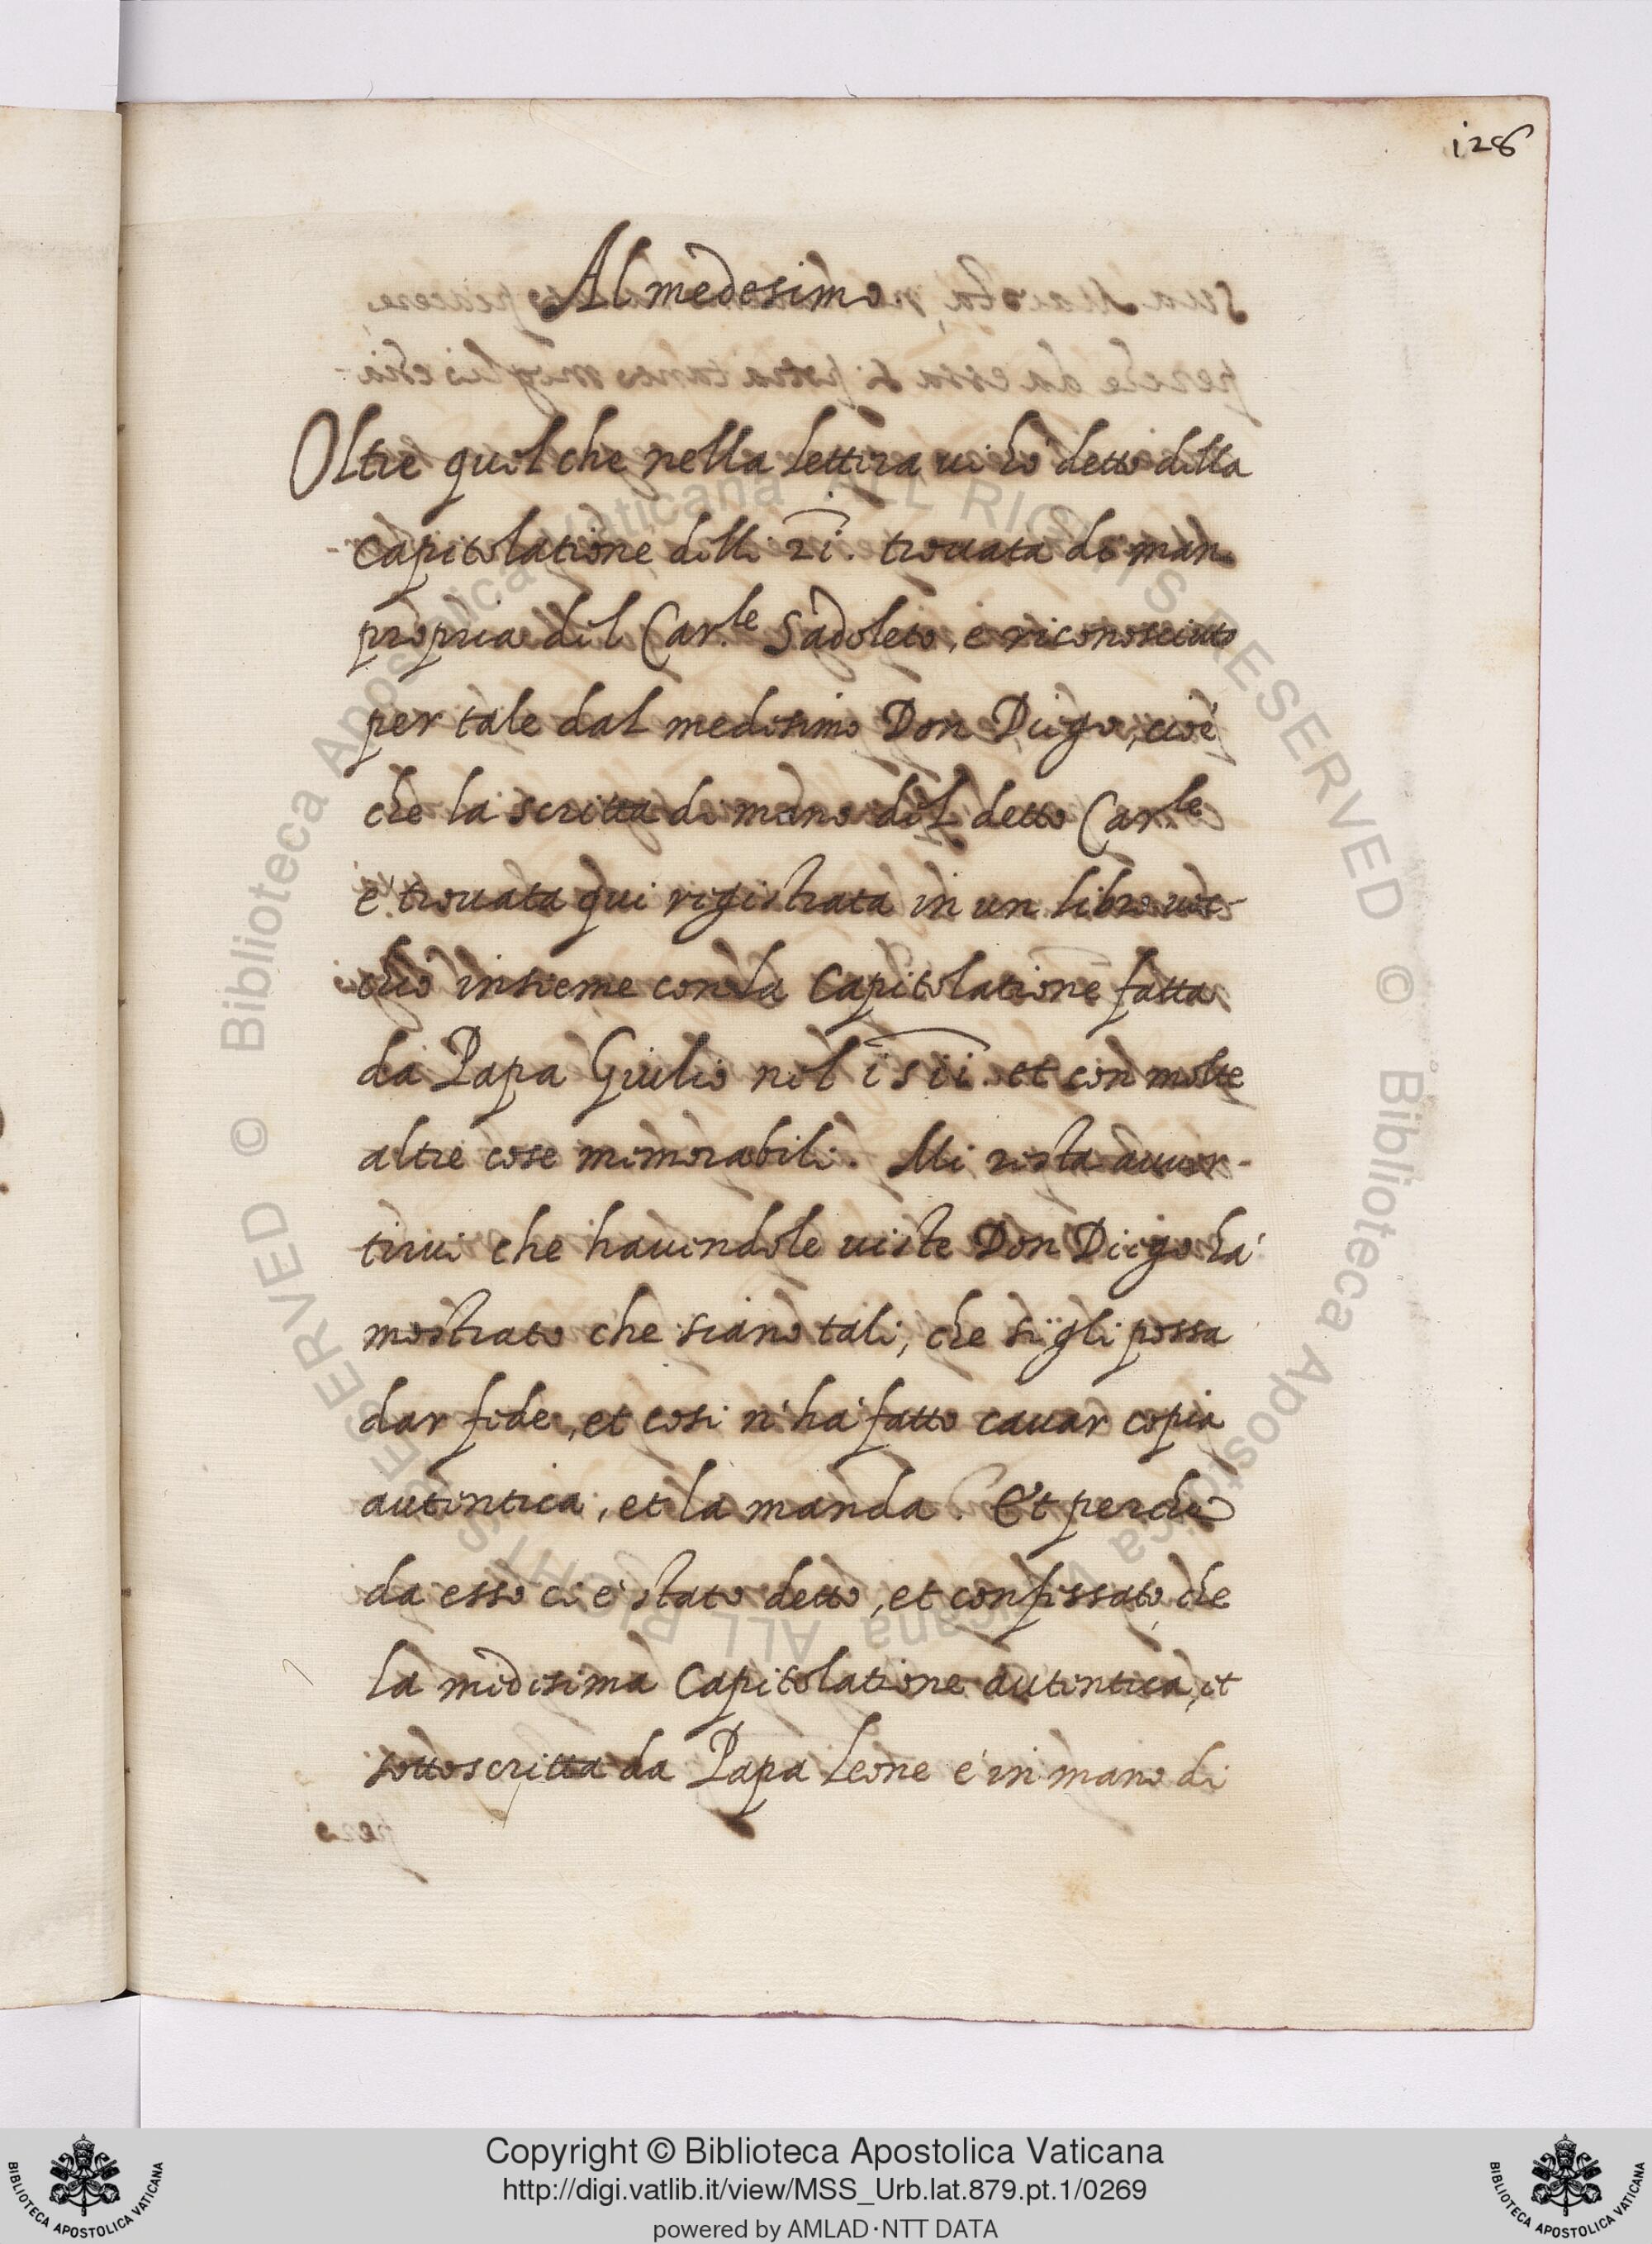 128
Al medesimo
Oltre quel che nella lettera vi hò detto della
Capitolatione delli 21. trouata di mano
propria del Car.le Sadoleto, e riconosciuto
per tale dal medesimo Don Diego, cioè
che la scritta di mano del detto Car.le
e' trouata qui registrata in un libro vec-
chio insieme con la Capitolatione fatta
da Papa Giulio nel 1511. et con molte
altre cose memorabili. Mi resta auuer-
tirui che hauendole uiste Don Diego ha'
mostrato che siano tali, che si gli possa
dar fede, et cosi n'ha fatto cauar copia
autentica, et la manda. Et perche
da esso ci e' stato detto, et confessato che
la medesima Capitolatione autentica, et
sottoscritta da Papa Leone e' in mano di
Copyright © Biblioteca Apostolica Vaticana
http://digi.vatlib.it/view/MSS_Urb.lat.879.pt.1/0269
powered by AMLAD·NTT DATA
BIBLIOTECA APOSTOLICA VATICANA
BIBLIOTECA APOSTOLICA VATICANA
© Biblioteca Apostolica Vaticana ALL RIGHTS RESERVED
© Biblioteca Apostolica Vaticana ALL RIGHTS RESERVED